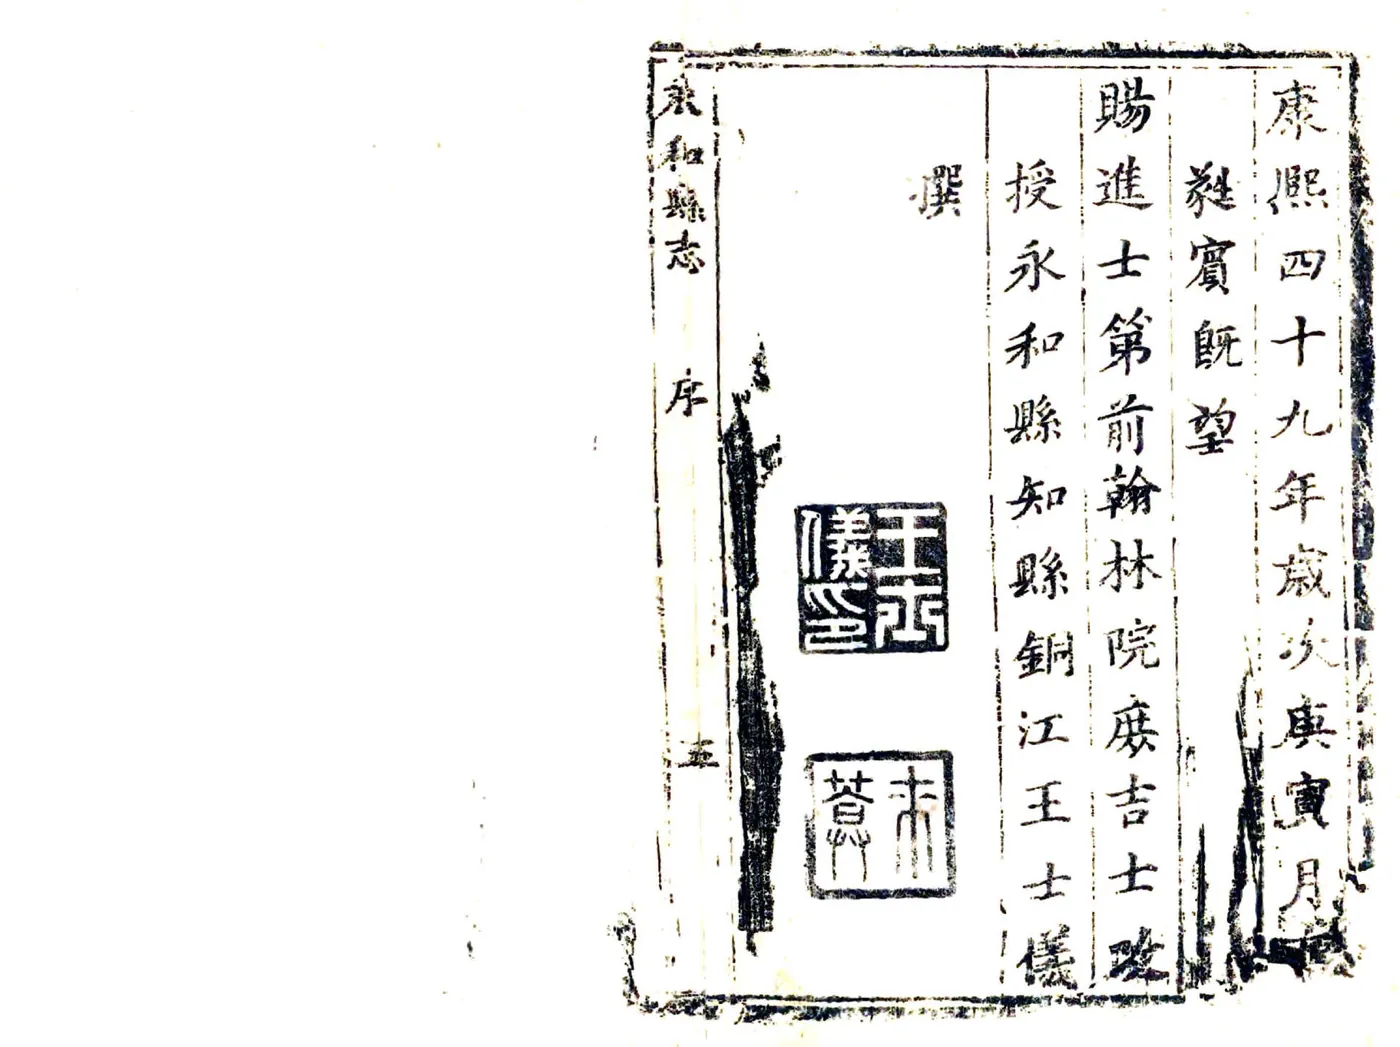 康熙四十九年歲次庚寅月
蕤賓既望
賜進士第前翰林院庶吉士改
授永和縣知縣銅江王士儀
撰
王士儀印
永和縣志 序 五